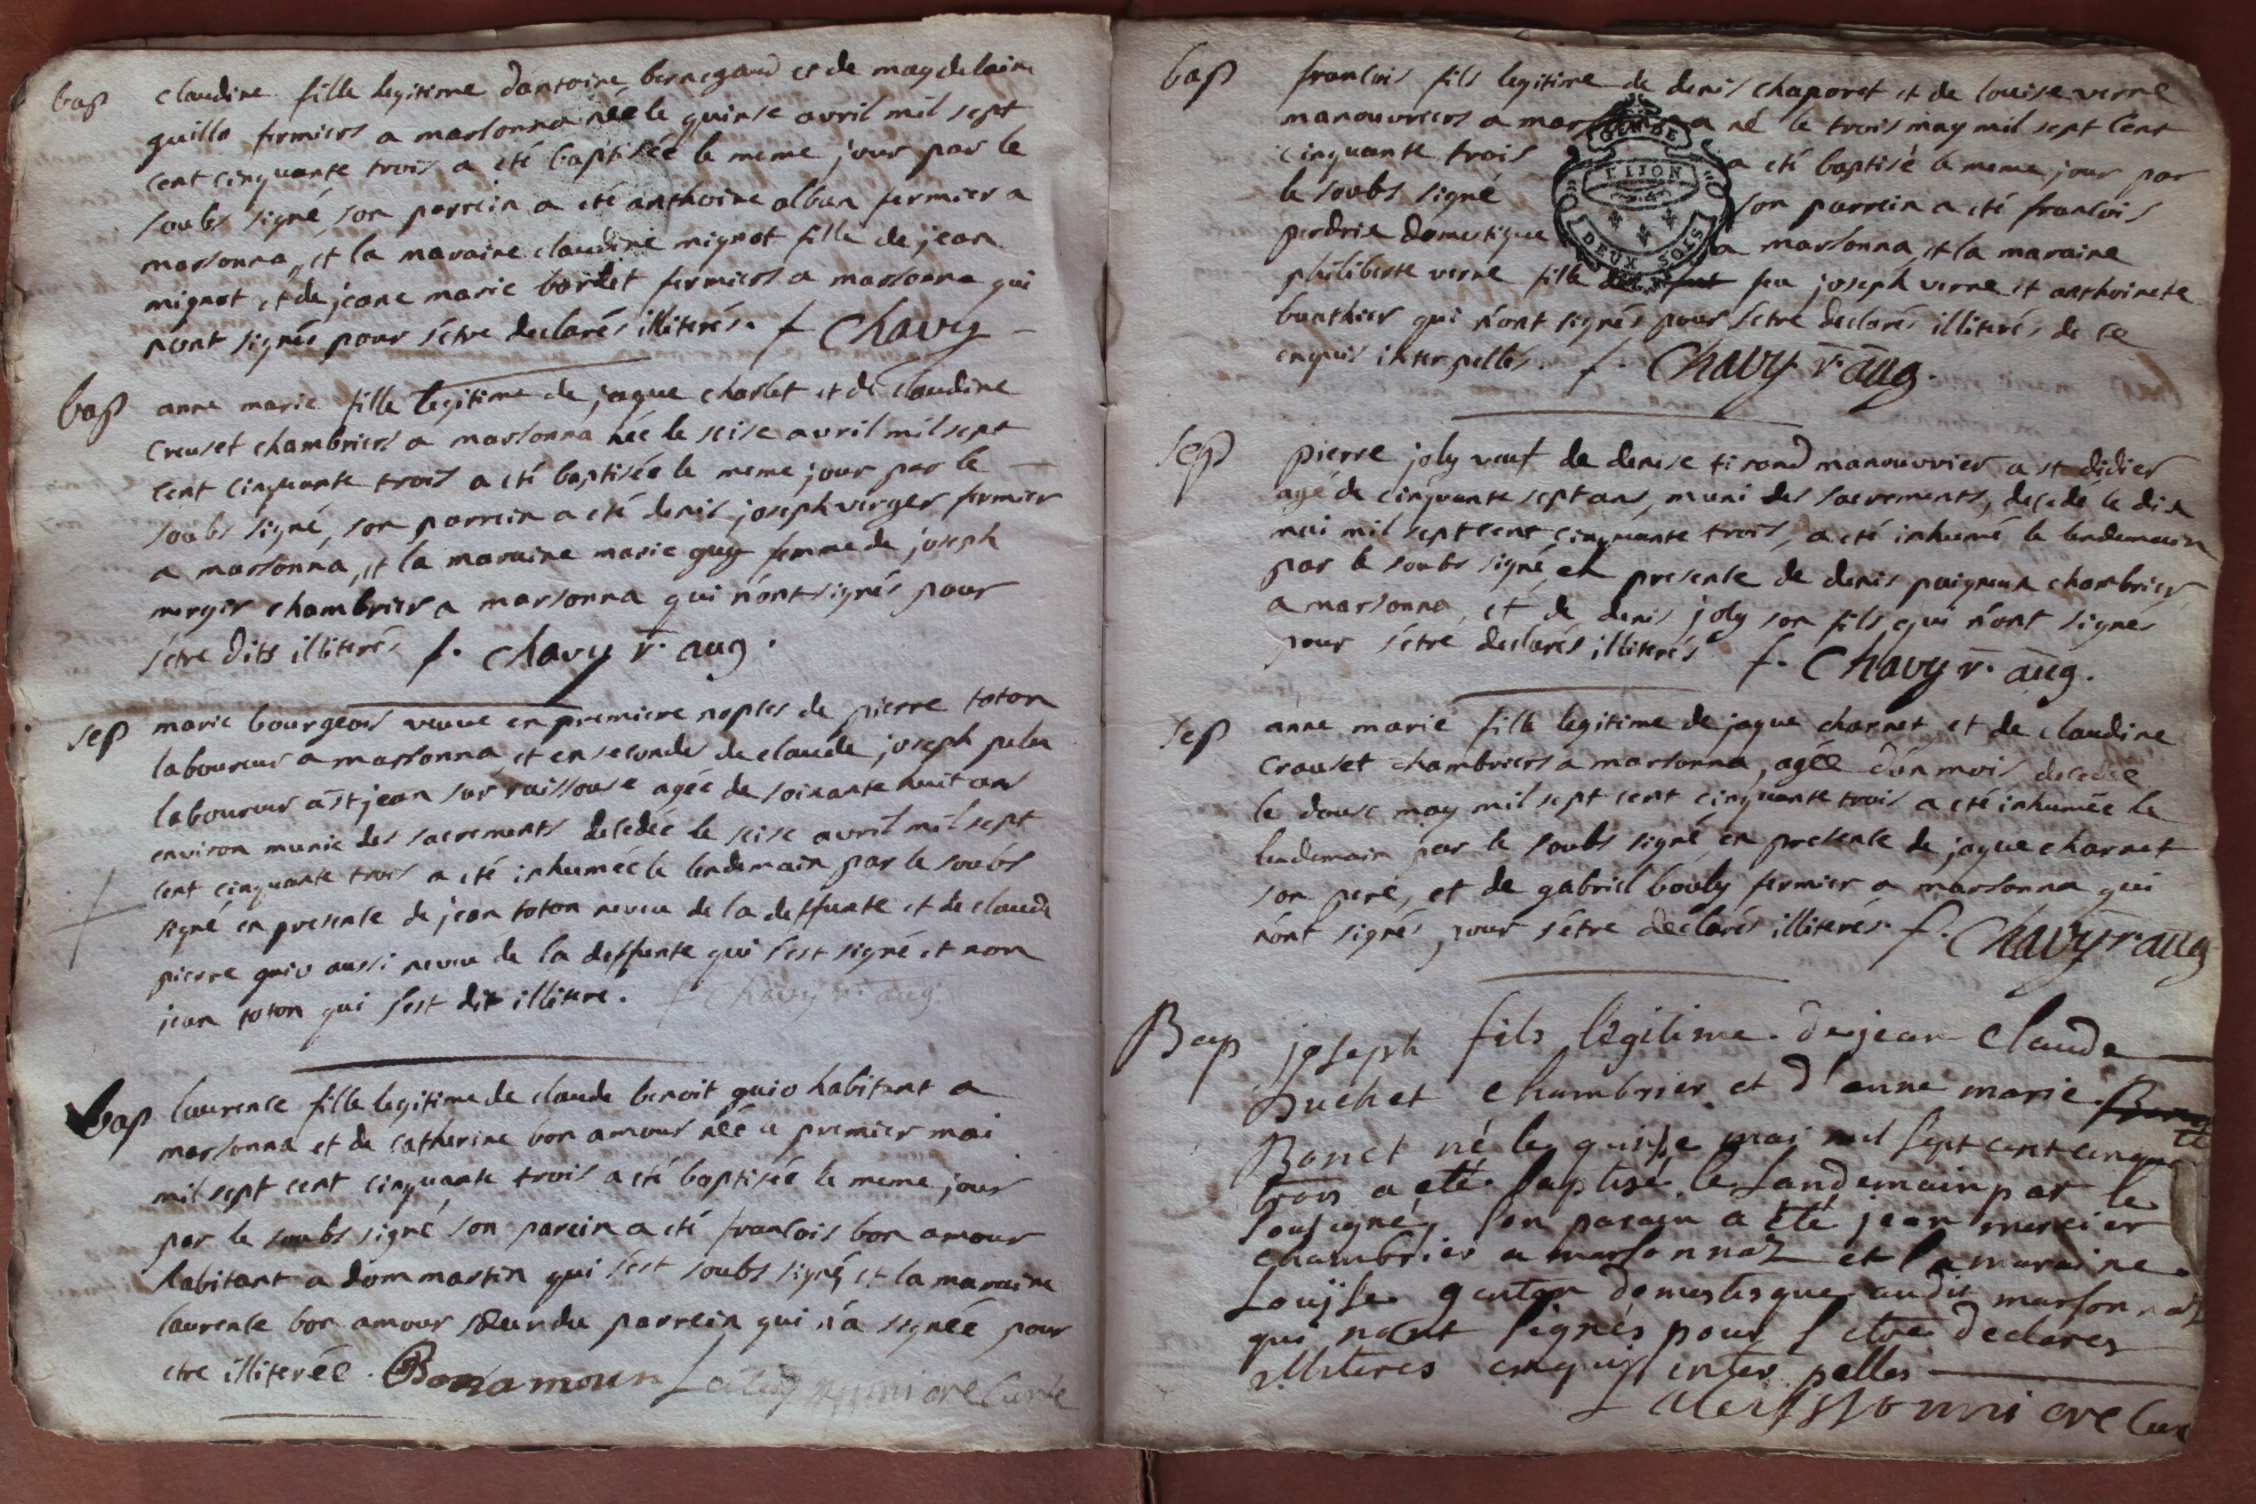 bap claudine fille legitime d'antoine bernegaud et de magdelaine
guillo fermiers a marsonna née le quinse avril mil sept
cent cinquante trois a été baptisée le meme jour par le
soubs signé, son parrein a été anthoine alban fermier a
marsonna, et la maraine claudine mignot fille de jean
mignot et de jeane marie bordet fermiers a marsonna qui
n'ont signés pour s'être declarés illiterés. f Chavy
bap anne marie fille legitime de jaque charlet et de claudine
creuset chambriers a marsonna née le seise avril mil sept
cent cinquante trois a été baptisée le meme jour par le
soubs signé, son parrein a été denis joseph verger fermier
a marsonna, et la maraine marie guy femme de joseph
merger chambrier a marsonna qui n'ont signés pour
s'etre dits illiterés f. chavy r. aug.
sep marie bourgeois veuve en premiere nopces de pierre toton
laboureur a marsonna et en seconde de claude joseph
laboureur a st jean sur raissouse agée de soixante huit ans
environ munie des sacrements decedée le seise avril mil sept
cent cinquante trois a été inhumée le lendemain par le soubs
signé en presence de jean toton neveu de la deffunte et de claude
pierre guio aussi neveu de la deffunte qui s'est signé et non
jean toton qui s'est dit illiteré. f Chavy r. aug.
bap laurence fille legitime de claude benoit guio habitant a
marsonna et de catherine bon amour née le premier mai
mil sept cent cinquante trois a été baptisée le meme jour
par le soubs signé son parein a été francois bon amour
habitant a dommartin qui s'est soubs signé, et la maraine
laurence bon amour soeur du parrein qui n'a signée pour
etre illiterée. Bonamour cure
bap francois fils legitime de denis chaporet et de louise verne
manouvriers a marsonna né le trois may mil sept cent
cinquante trois a été baptisé le meme jour par
le soubs signé son parrein a été francois
perdrix domestique a marsonna, et la maraine
philiberte verne fille feu joseph verne et anthoinete
banthier qui n'ont signés pour s'etre declarés illiterés de ce
enquis interpellés. f. Chavy r. aug.
GEN DE
DIJON
DEUX SOLS
sep pierre joly veuf de denise tirand manouvrier a st didier
agé de cinquante sept ans, muni des sacrements, decedé le dix
mai mil sept cent cinquante trois, a été inhumé le lendemain
par le soubs signé en presence de denis paigneux chambrier
a marsonna, et de denis joly son fils, qui n'ont signés
pour s'etre declarés illiterés f. Chavy r. aug.
sep anne marie fille legitime de jaque charnet et de claudine
crauset chambriers a marsonna, agée d'un mois decedée
le douse may mil sept cent cinquante trois a été inhumée le
lendemain par le soubs signé, en presence de jaque charnet
son pere, et de gabriel bouly fermier a marsonna qui
n'ont signés, pour s'être declarés illiterés. f. Chavy r. aug
Bap joseph fils legitime de jean Claude
Buchet chambrier et d'anne marie
Bonet né le quinse mai mil sept cent cinquante
trois a eté baptisé le landemain par le
sousigné, son parain a été jean mercier
chambrier a marsonnaz et la maraine
Louïse genton domestique audit marsonnaz
qui n'ont signés pour s'etre declares
illiteres enquis interpelles
cure